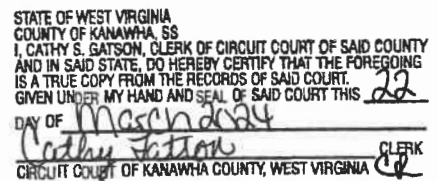 STATE OF WEST VIRGINIA
COUNTY OF KANAWHA, SS
I, CATHY S. GATSON, CLERK OF CIRCUIT COURT OF SAID COUNTY
AND IN SAID STATE, DO HEREBY CERTIFY THAT THE FOREGOING
IS A TRUE COPY FROM THE RECORDS OF SAID COURT.
GIVEN UNDER MY HAND AND SEAL OF SAID COURT THIS 22
DAY OF March 2024
Cathy Gatson CLERK
CIRCUIT COURT OF KANAWHA COUNTY, WEST VIRGINIA